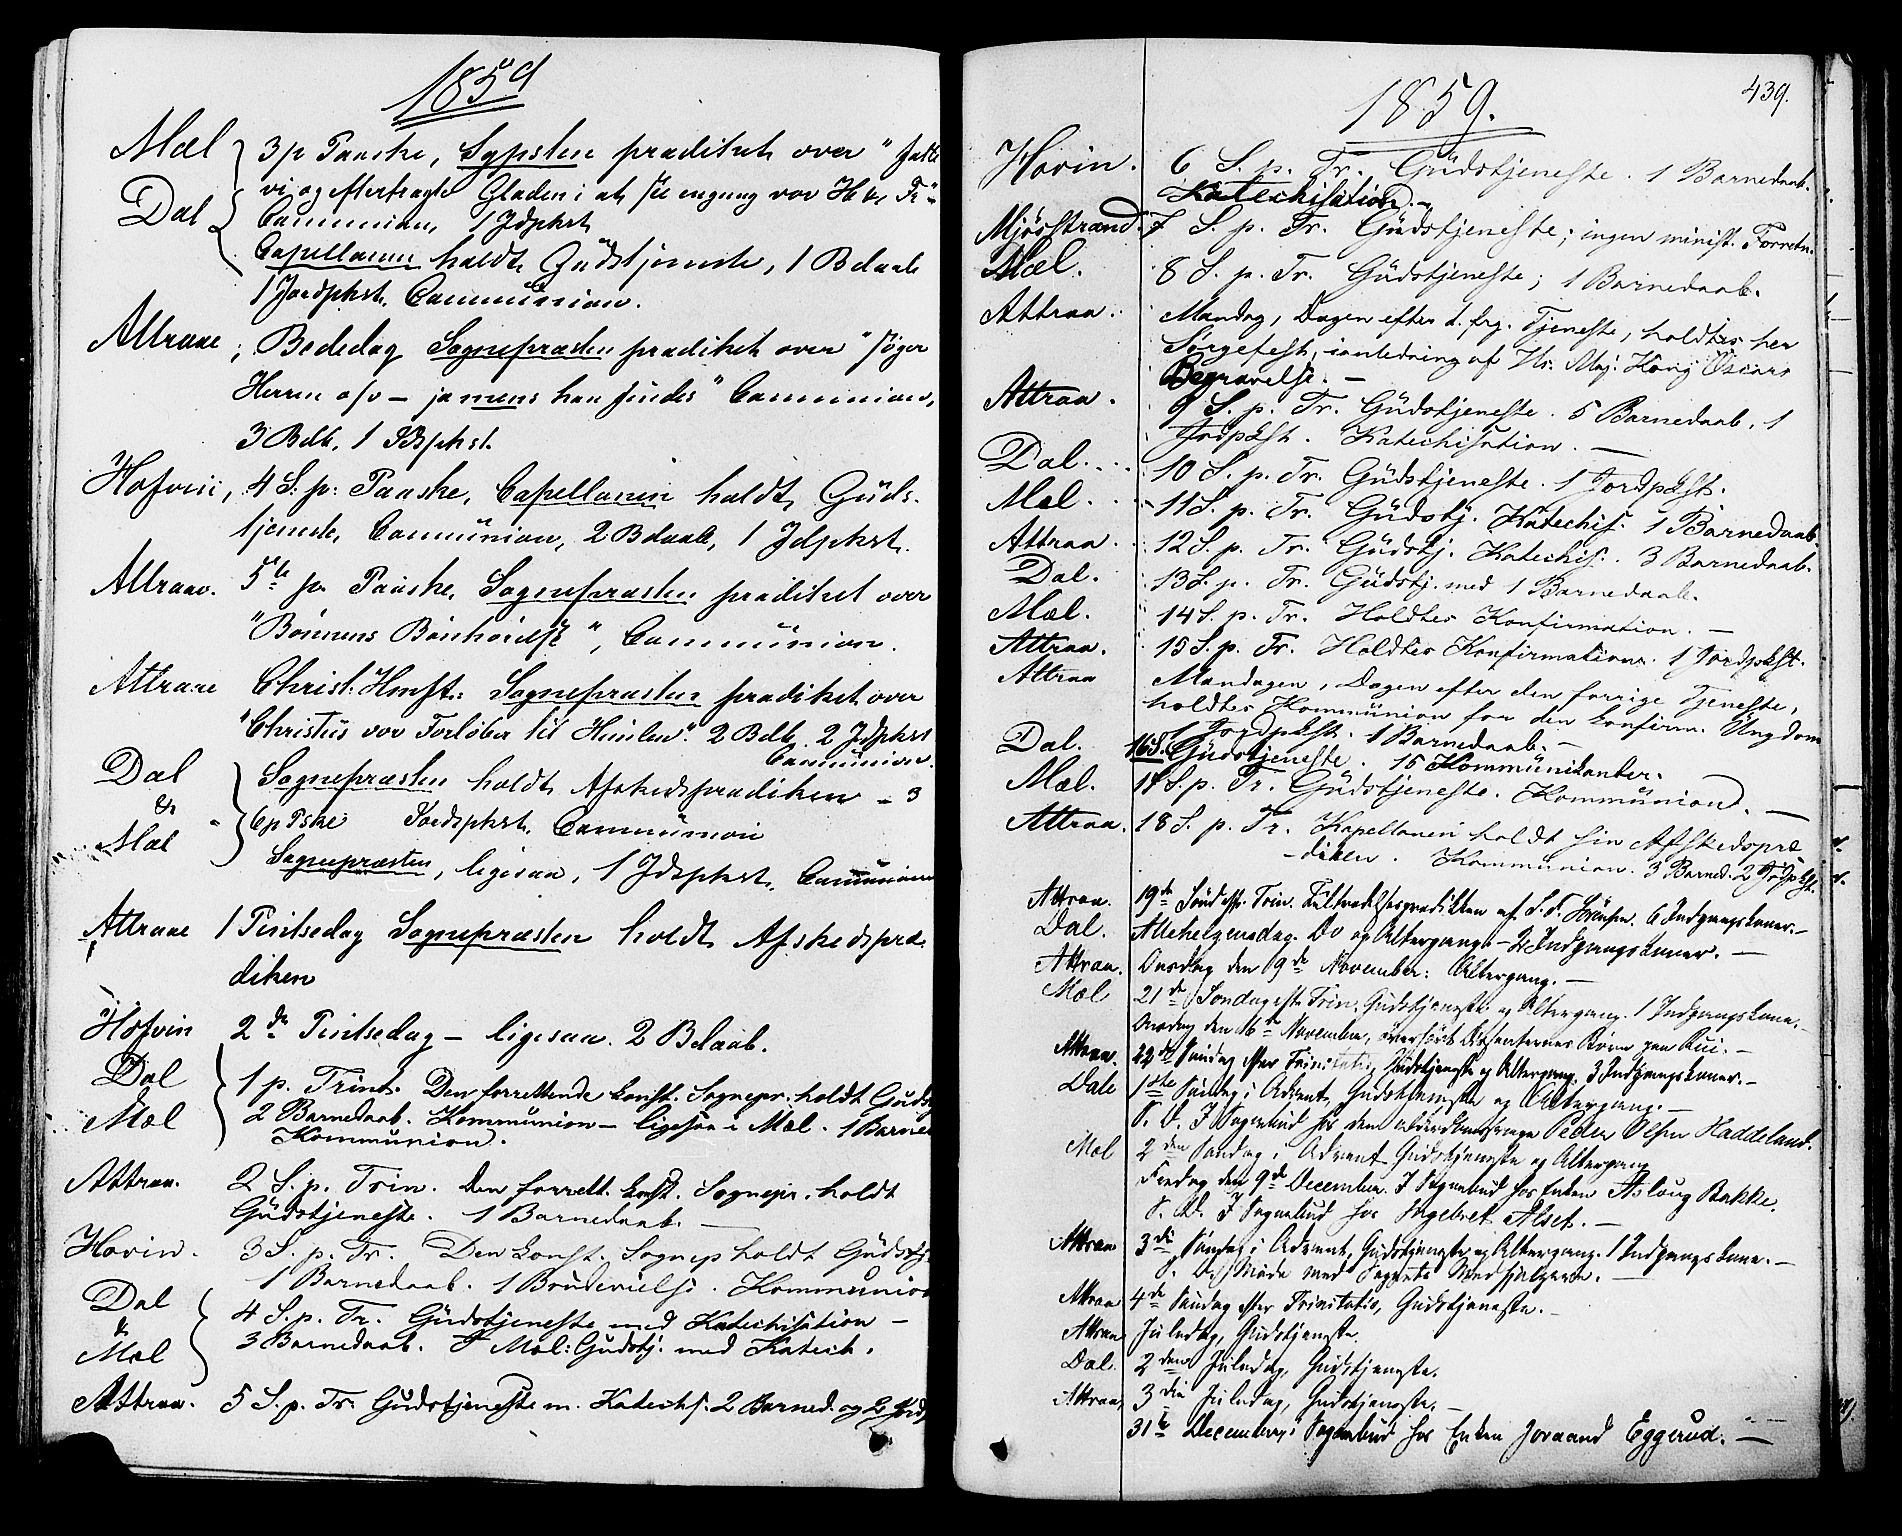 1859
Mæl 3 p Paaske, Sgpsten prædiket over "
vi og eftertragte Glæden i at engang vor
Dal Communion, 1 Jdpkst
Capellanen holdt Gudstjeneste, 1 Bdaab
1 Jordpkst. Communion.
Attraae, Bededag Sognepræsten prædiket over "søger
Herren - ja mens han findes" Communion,
3 Bdb, 1 Jdspkst.
Hofvin, 4 S. p. Paaske, Capellanen holdt Guds-
tjeneste, Communion, 2 Bdaab, 1 Jdpkst.
Attraae. 5te p. Paaske, Sognepræsten prædiket over
"Bønnens Bønhørelse", Communion.
Attraae Christ. Himft. Sognepræsten prædiket over
"Christus vor Forløber til Himlen". 2 Bdb. 2 Jdpkst
Communion.
Dal Sognepræsten holdt Afskedsprædiken - 3
& 6 p Pske Jordspkst, Communion
Mæl Sognepræsten, ligesaa, 1 Jdspkst, Communion
Attraae 1 Pintsedag Sognepræsten holdt Afskedspræ-
diken
Hofvin 2den Pintsedag - ligesaa. 2 Bdaab.
Dal 1 p. Trinit. Den forrettende konst. Sognepr. holdt Guds
Mæl 2 Barnedaab. Kommunion - ligesaa i Mæl. 1 Barne
Kommunion.
Attraa. 2 S. p. Trin. Den forrett. konst. Sognepr. holdt
Gudstjeneste. 1 Barnedaab. —
Hovin. 3 S. p. Tr. Den konst. Sognep holdt Gudstj.
1 Barnedaab. 1 Brudevielse. Kommunion
Dal 4 S. p. Tr. Gudstjeneste med Katechisation -
& Mæl 3 Barnedaab. I Mæl: Gudstj. med Katech.
Attraa. 5 S. p. Tr. Gudstjeneste m. Katechs. 2 Barned. og 2 Jord
439.
1859.
Hovin. 6 S. p. Tr. Gudstjeneste. 1 Barnedaab.
Katechisation. -
Mjøsstrand. 7 S. p. Tr. Gudstjeneste; ingen minist. Forretn.
Mæl. 8 S. p. Tr. Gudstjeneste; 1 Barnedaab.
Attraa. Mandag, Dagen efter d. frg. Tjeneste, holdtes her
Sørgefest, ianledning af Hs. Maj. Kong Oscars
Begravelse. —
Attraa. 9 S. p. Tr. Gudstjeneste. 5 Barnedaab, 1
Jordpkst. Katechisation. —
Dal. 10 S. p. Tr. Gudstjeneste. 1 Jordpkst.
Mæl. 11 S. p. Tr. Gudstj. Katechis. 1 Barnedaab.
Attraa. 12 S. p. Tr. Gudstj. Katechis. 3 Barnedaab.
Dal. 13 S. p. Tr. Gudstj. med 1 Barnedaab.
Mæl. 14 S. p. Tr. Holdtes Konfirmation. —
Attraa. 15 S. p. Tr. Holdtes Konfirmation. 1 Jordpkst.
Attraa Mandagen, Dagen efter den forrige Tjeneste,
holdtes Kommunion for den konfirm. Ungdom
1 Jordpkst. 1 Barnedaab. —
Dal. 16 S. Gudstjeneste. 15 Kommunikanter.
Mæl. 17 S. p. Tr. Gudstjeneste. Kommunion. —
Attraa. 18 S. p. Tr. Kapellanen holdt sin Afskedspræ
-diken. Kommunion. 3 Barned. 2 Jodpkst.
Attraa. 19de Sønd. eft. Trin. Tiltrædelsesprædiken af S. P. Sørensen. 6 Indgangskoner. -
Dal. Allehelgensdag. Do og Altergang. - 2 Indgangskoner. —
Attraa. Onsdag den 9de November: Altergang. —
Mæl 21de Søndag eft. Trin. Gudstjeneste og Altergang. 1 Indgangskone. -
Onsdag den 16de November, overhørt Dissenternes Børn paa Rui. -
Attraa. 22de Søndag efter Trinitatis, Gudstjeneste og Altergang, 3 Indgangskoner. -
Dale 1ste Søndag i Advent, Gudstjeneste og Altergang. -
S. D. I Sognebud hos Peder Olsen Haddeland.
Mæl 2den Søndag i Advent Gudstjeneste og Altergang
Fredag den 9de December. I Sognebud hos Enken Aslaug Bakke.
S. D. I Sognebud hos Ingebret Alset. —
Attraa 3die Søndag i Advent, Gudstjeneste og Altergang. 1 Indgangskone. -
S. D. Møde med Sognets Medhjelpere. —
Attraa 4de Søndag efter Trinitatis, Gudstjeneste. -
Attraa Juledag, Gudstjeneste.
Dal. 2den Juledag, Gudstjeneste.
Attraa, 3die Juledag, Gudstjeneste. -
31te December, i Sognebud hos Enken Joraand Eggerud. —